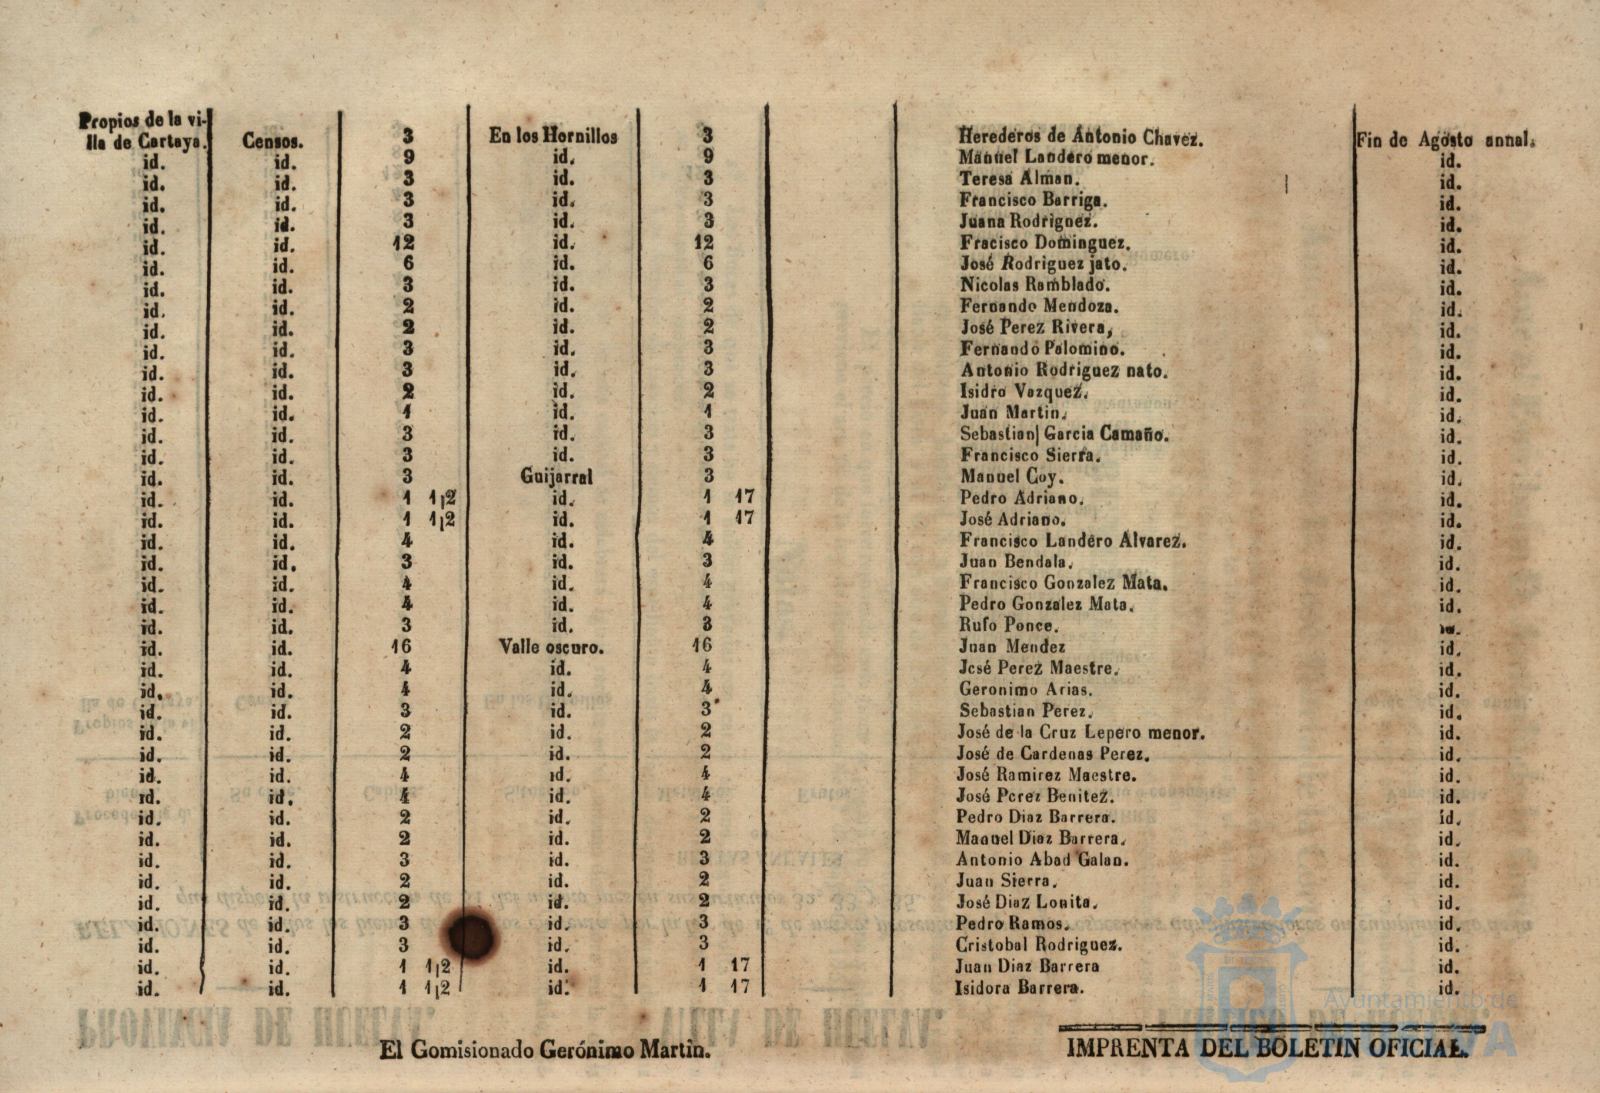 Propios de la vi-
lla de Cartaya. Censos. 3 En los Hornillos 3 Herederos de Antonio Chavez. Fin de Agosto annal.
id. id. 9 id. 9 Manuel Landero menor. id.
id. id. 3 id. 3 Teresa Alman. id.
id. id. 3 id. 3 Francisco Barriga. id.
id. id. 3 id. 3 Juana Rodriguez. id.
id. id. 12 id. 12 Fracisco Dominguez. id.
id. id. 6 id. 6 José Rodriguez jato. id.
id. id. 3 id. 3 Nicolas Ramblado. id.
id. id. 2 id. 2 Fernando Mendoza. id.
id. id. 2 id. 2 José Perez Rivera, id.
id. id. 3 id. 3 Fernando Palomino. id.
id. id. 3 id. 3 Antonio Rodriguez nato. id.
id. id. 2 id. 2 Isidro Vazquez. id.
id. id. 1 id. 1 Juan Martin. id.
id. id. 3 id. 3 Sebastian| Garcia Camaño. id.
id. id. 3 id. 3 Francisco Sierra. id.
id. id. 3 Guijarral 3 Manuel Coy. id.
id. id. 1 1¡2 id. 1 17 Pedro Adriano. id.
id. id. 1 1¡2 id. 1 17 José Adriano. id.
id. id. 4 id. 4 Francisco Landero Alvarez. id.
id. id. 3 id. 3 Juan Bendala. id.
id. id. 4 id. 4 Francisco Gonzalez Mata. id.
id. id. 4 id. 4 Pedro Gonzalez Mata. id.
id. id. 3 id. 3 Rufo Ponce. id.
id. id. 16 Valle oscuro. 16 Juan Mendez id.
id. id. 4 id. 4 José Perez Maestre. id.
id. id. 4 id. 4 Geronimo Arias. id.
id. id. 3 id. 3 Sebastian Perez. id.
id. id. 2 id. 2 José de la Cruz Lepero menor. id.
id. id. 2 id. 2 José de Cardenas Perez. id.
id. id. 4 id. 4 José Ramirez Maestre. id.
id. id. 4 id. 4 José Perez Benitez. id.
id. id. 2 id. 2 Pedro Diaz Barrera. id.
id. id. 2 id. 2 Manuel Diaz Barrera. id.
id. id. 3 id. 3 Antonio Abad Galan. id.
id. id. 2 id. 2 Juan Sierra. id.
id. id. 2 id. 2 José Diaz Lonita. id.
id. id. 3 id. 3 Pedro Ramos. id.
id. id. 3 id. 3 Cristobal Rodriguez. id.
id. id. 1 1¡2 id. 1 17 Juan Diaz Barrera id.
id. id. 1 1¡2 id. 1 17 Isidora Barrera. id.
El Gomisionado Gerónimo Martin.
IMPRENTA DEL BOLETIN OFICIAL.
Ayuntamiento de
HUELVA